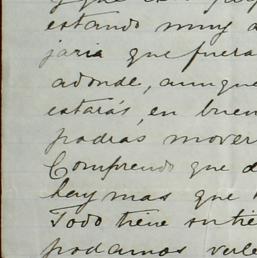 estando muy
jaria que fuera
adonde, aunque
estarás, en buen
podras mover
Comprendo que d
hay mas que
Todo tiene su tie
podamos verle